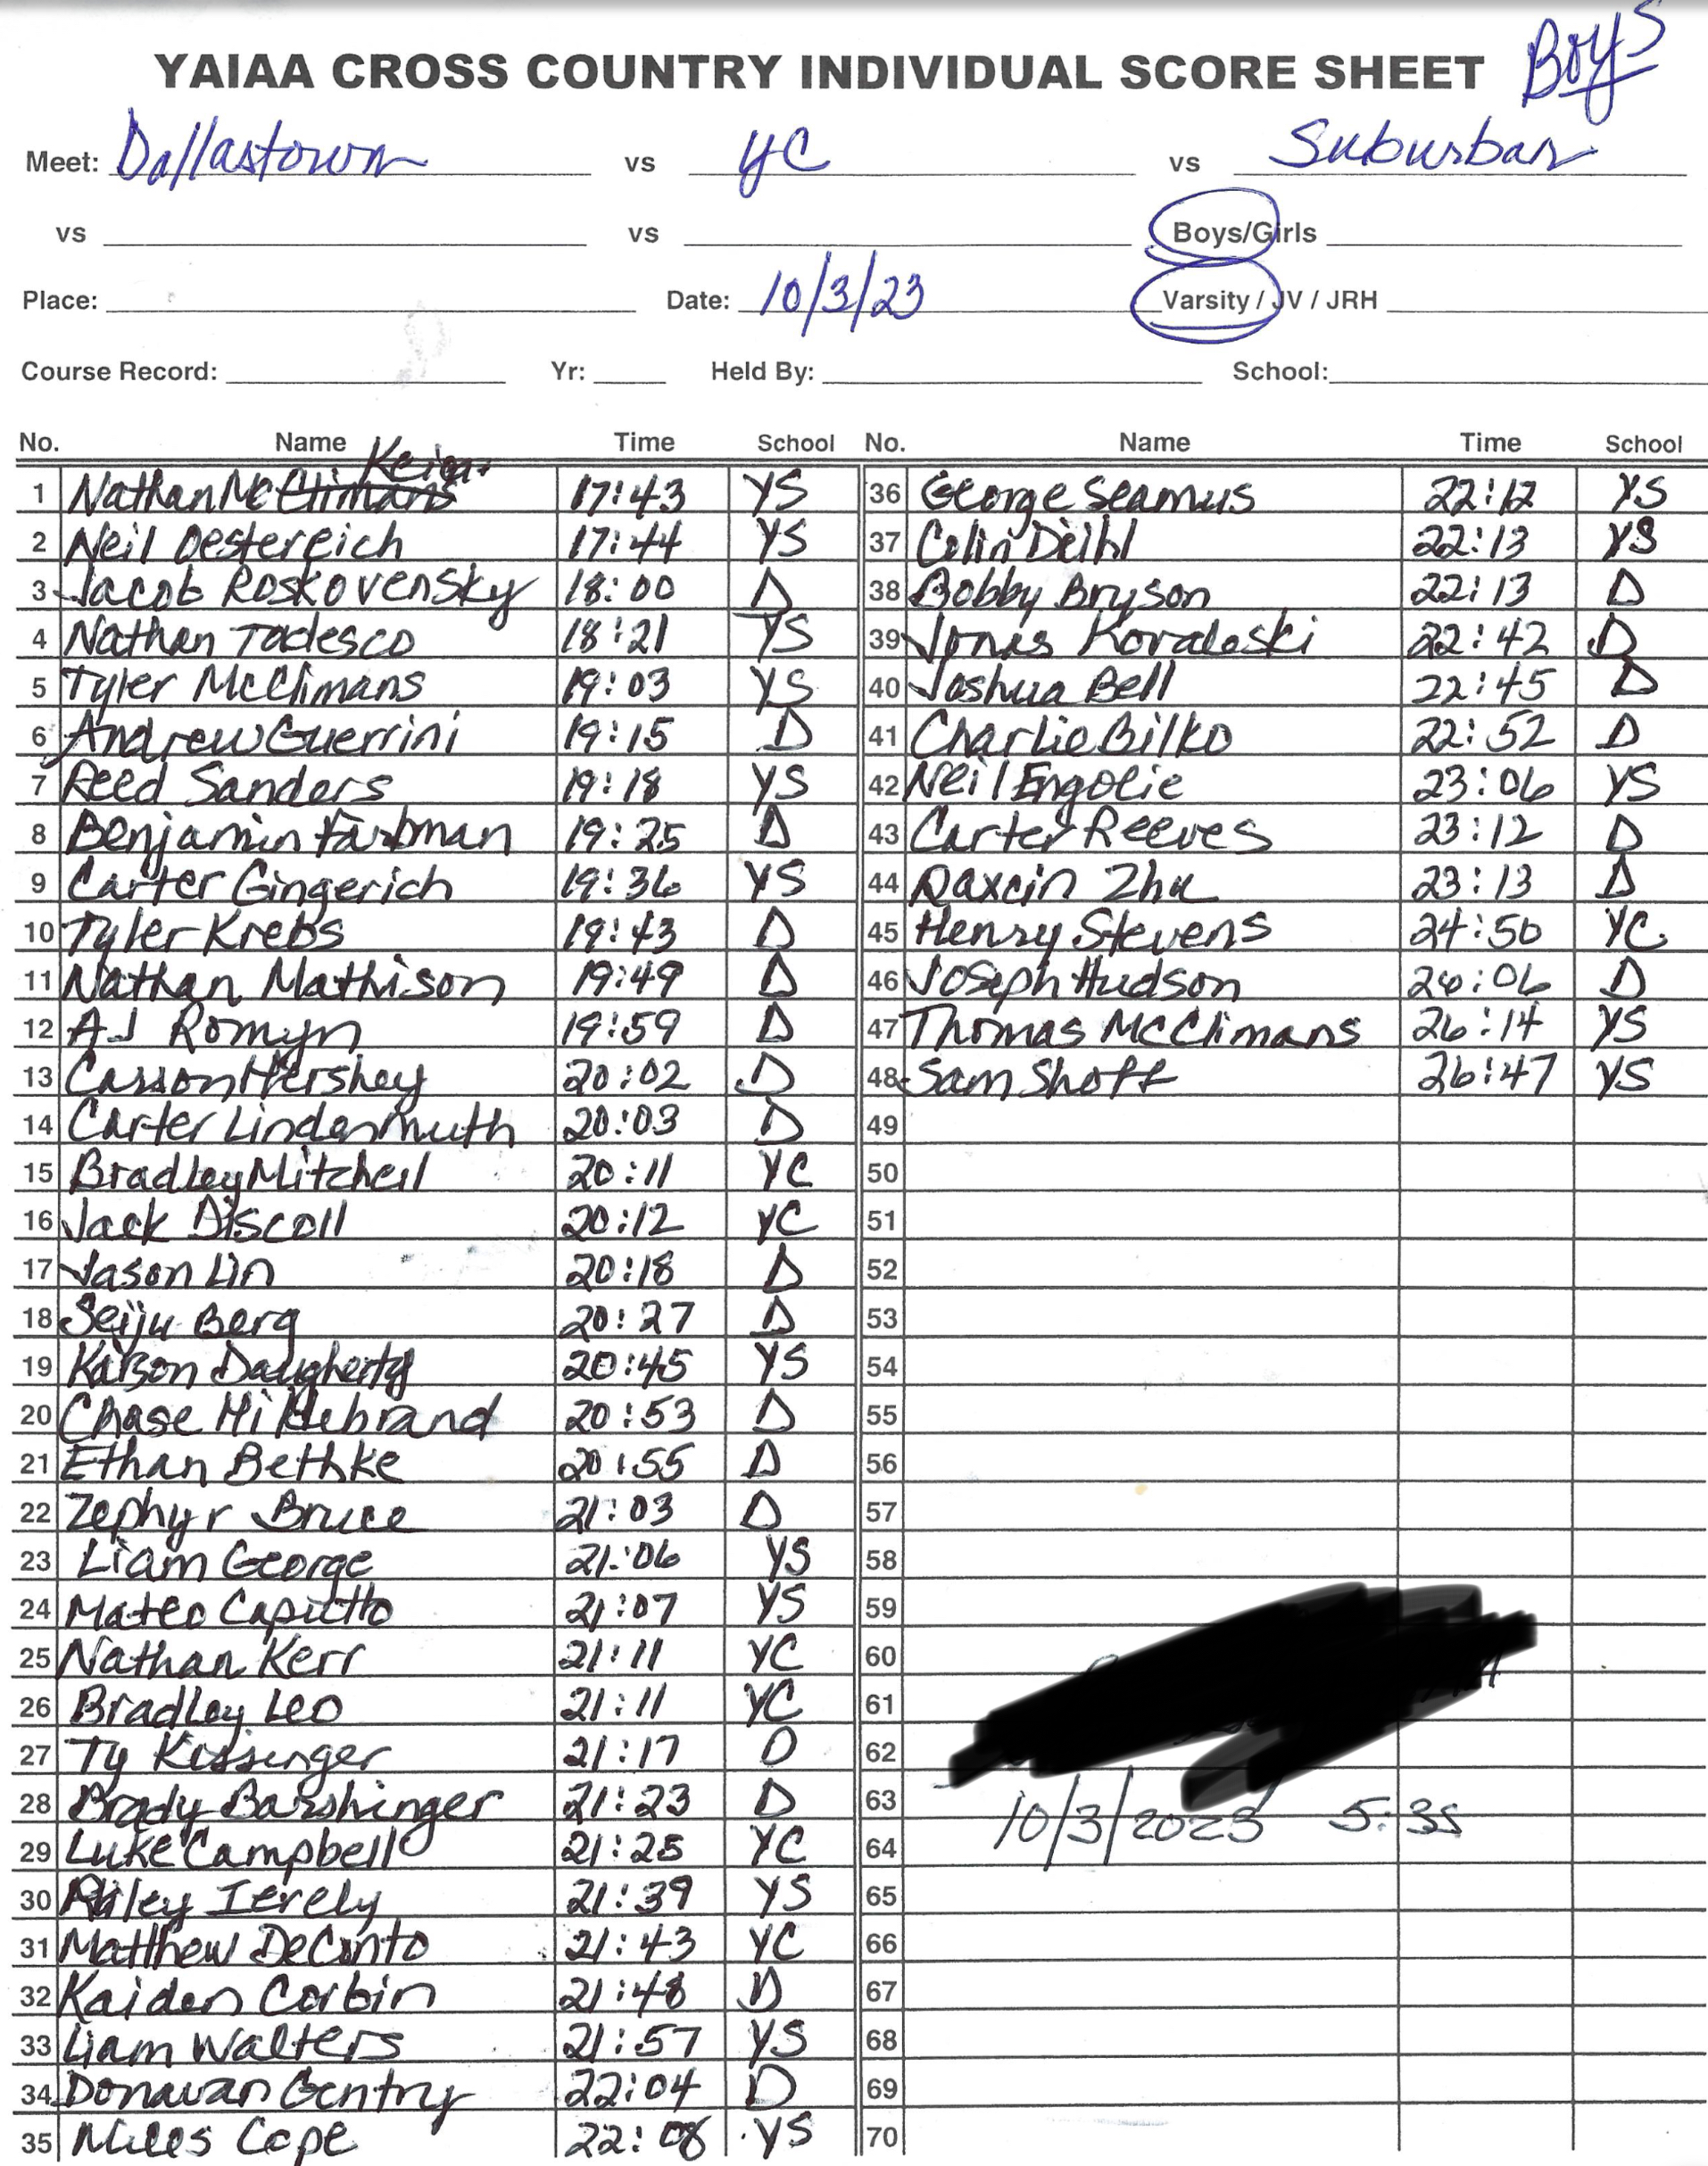 YAIAA CROSS COUNTRY INDIVIDUAL SCORE SHEET Boys
Meet: Dallastown vs YC vs Suburban
vs vs Boys/Girls
Place: Date: 10/3/23 Varsity / JV / JRH
Course Record: Yr: Held By: School:
No. Name Time School No. Name Time School
1 Nathan Mc Climans Keien 17:43 YS 36 George Seamus 22:12 YS
2 Neil Oestereich 17:44 YS 37 Colin Deihl 22:13 YS
3 Jacob Roskovensky 18:00 D 38 Bobby Bryson 22:13 D
4 Nathan Tadesco 18:21 YS 39 Jonas Kovaleski 22:42 D
5 Tyler McClimans 19:03 YS 40 Joshua Bell 22:45 D
6 Andrew Guerrini 19:15 D 41 Charlie Bilko 22:52 D
7 Reed Sanders 19:18 YS 42 Neil Engolie 23:06 YS
8 Benjamin Farbman 19:25 D 43 Carter Reeves 23:12 D
9 Carter Gingerich 19:36 YS 44 Daxcin Zhu 23:13 D
10 Tyler Krebs 19:43 D 45 Henry Stevens 24:50 YC
11 Nathan Mathison 19:49 D 46 Joseph Hudson 26:06 D
12 AJ Romyn 19:59 D 47 Thomas McClimans 26:14 YS
13 Carson Hershey 20:02 D 48 Sam Shoff 26:47 YS
14 Carter Lindenmuth 20:03 D 49
15 Bradley Mitchell 20:11 YC 50
16 Jack Discoll 20:12 YC 51
17 Jason Lin 20:18 D 52
18 Seiju Berg 20:27 D 53
19 Karson Daugherty 20:45 YS 54
20 Chase Hildebrand 20:53 D 55
21 Ethan Bethke 20:55 D 56
22 Zephyr Bruce 21:03 D 57
23 Liam George 21:06 YS 58
24 Mateo Caputto 21:07 YS 59
25 Nathan Kerr 21:11 YC 60
26 Bradley Leo 21:11 YC 61
27 Ty Kissinger 21:17 D 62
28 Brady Barshinger 21:23 D 63 10/3/2023 5:35
29 Luke Campbell 21:25 YC 64
30 Riley Ierely 21:39 YS 65
31 Matthew DeConto 21:43 YC 66
32 Kaiden Corbin 21:48 D 67
33 Liam Walters 21:57 YS 68
34 Donavan Gentry 22:04 D 69
35 Miles Cope 22:08 YS 70